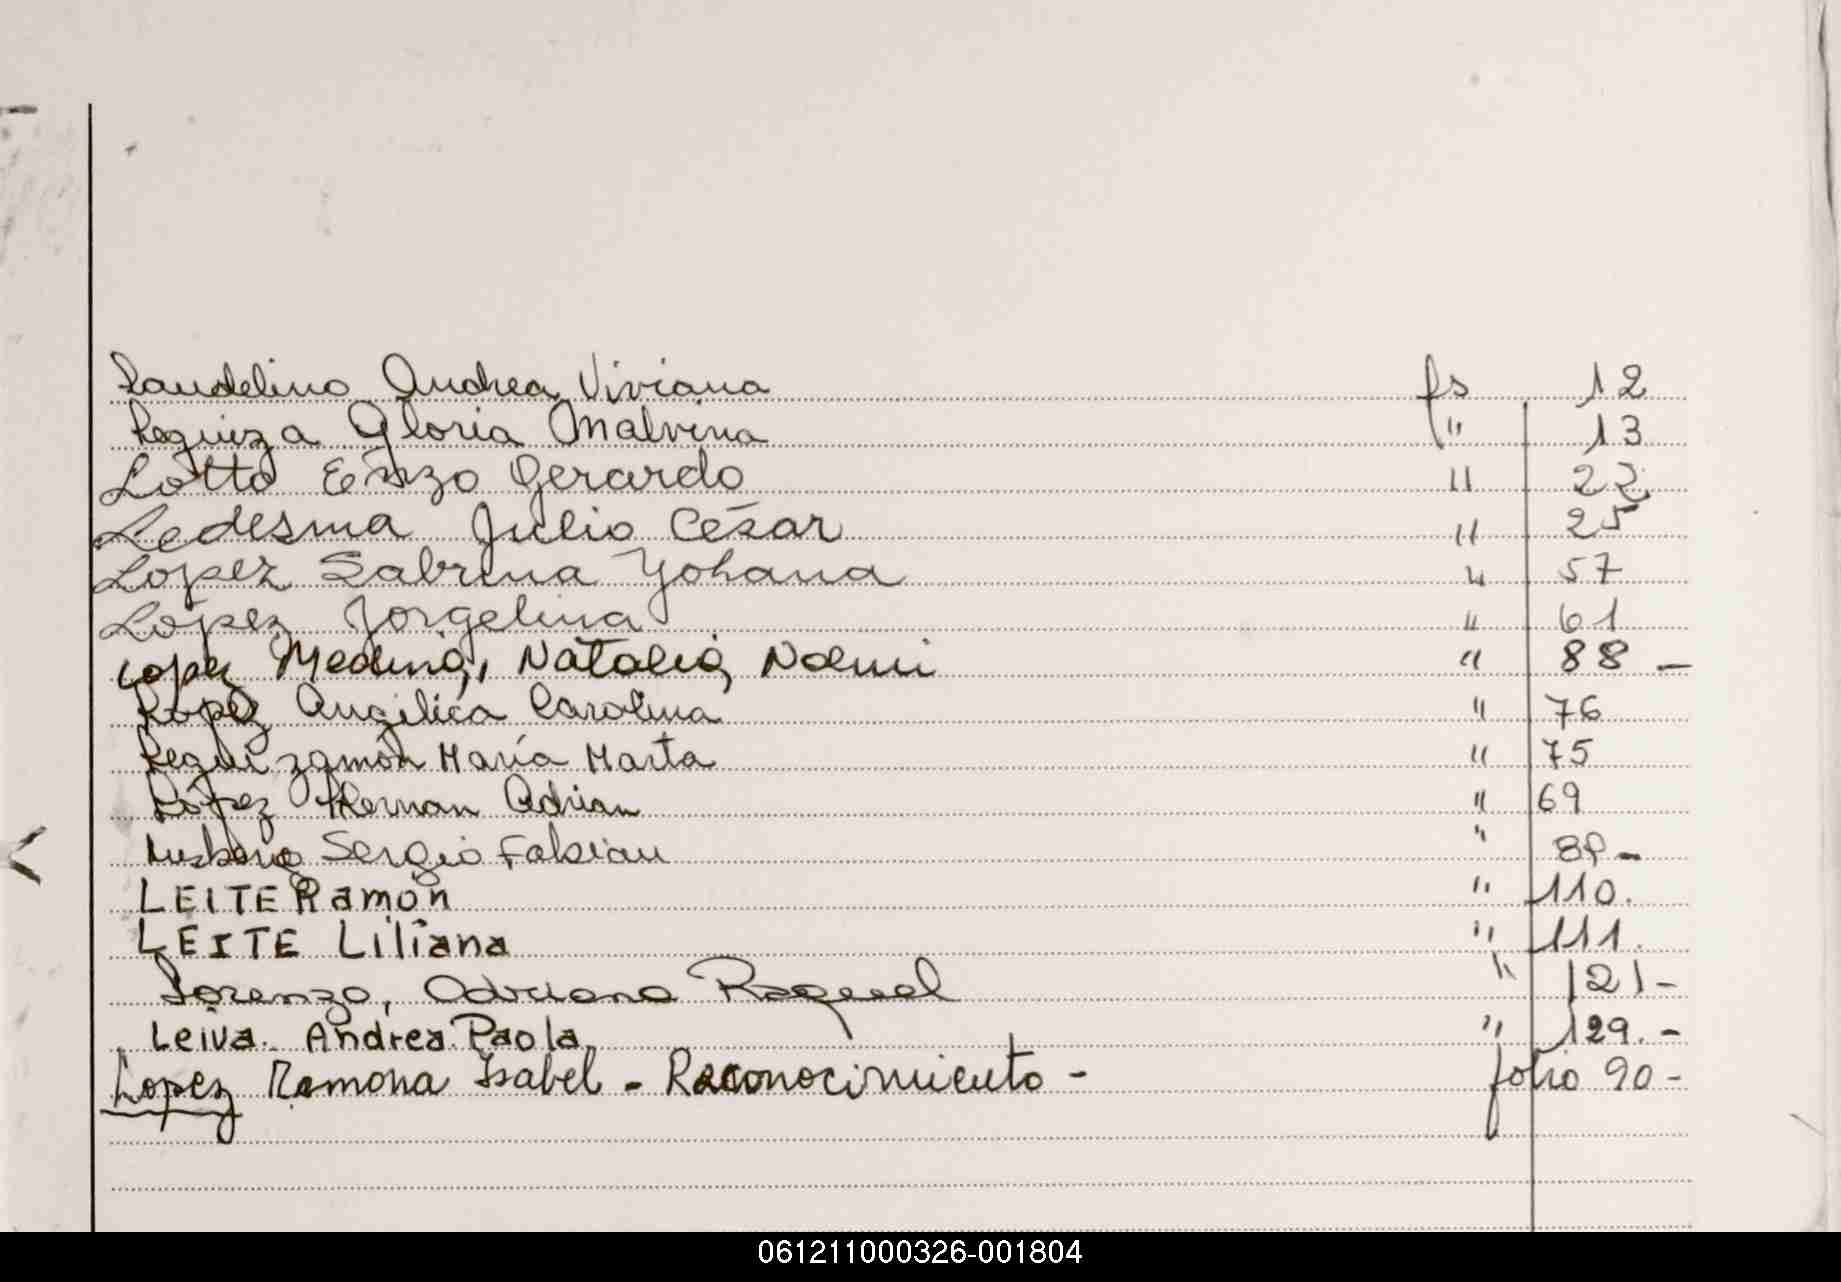 Landelino Andrea Viviana fs 12
Leguiza Gloria Malvina " 13
Lotto Enzo Gerardo " 22
Ledesma Julio César " 25
Lopez Sabrina Yohana " 57
Lopez Jorgelina " 61
Lopez Medina, Natalia Noemi " 88 -
Lopez Angélica Carolina " 76
Leguizamón María Marta " 75
López Hernan Adrian " 69
Sergio Fabian "
LEITE Ramón " 110.
LEITE Liliana " 111.
Lorenzo, Adriana Raquel " 121-
Leiva Andrea Paola " 129.-
Lopez Ramona Isabel - Reconocimiento - folio 90-
061211000326-001804